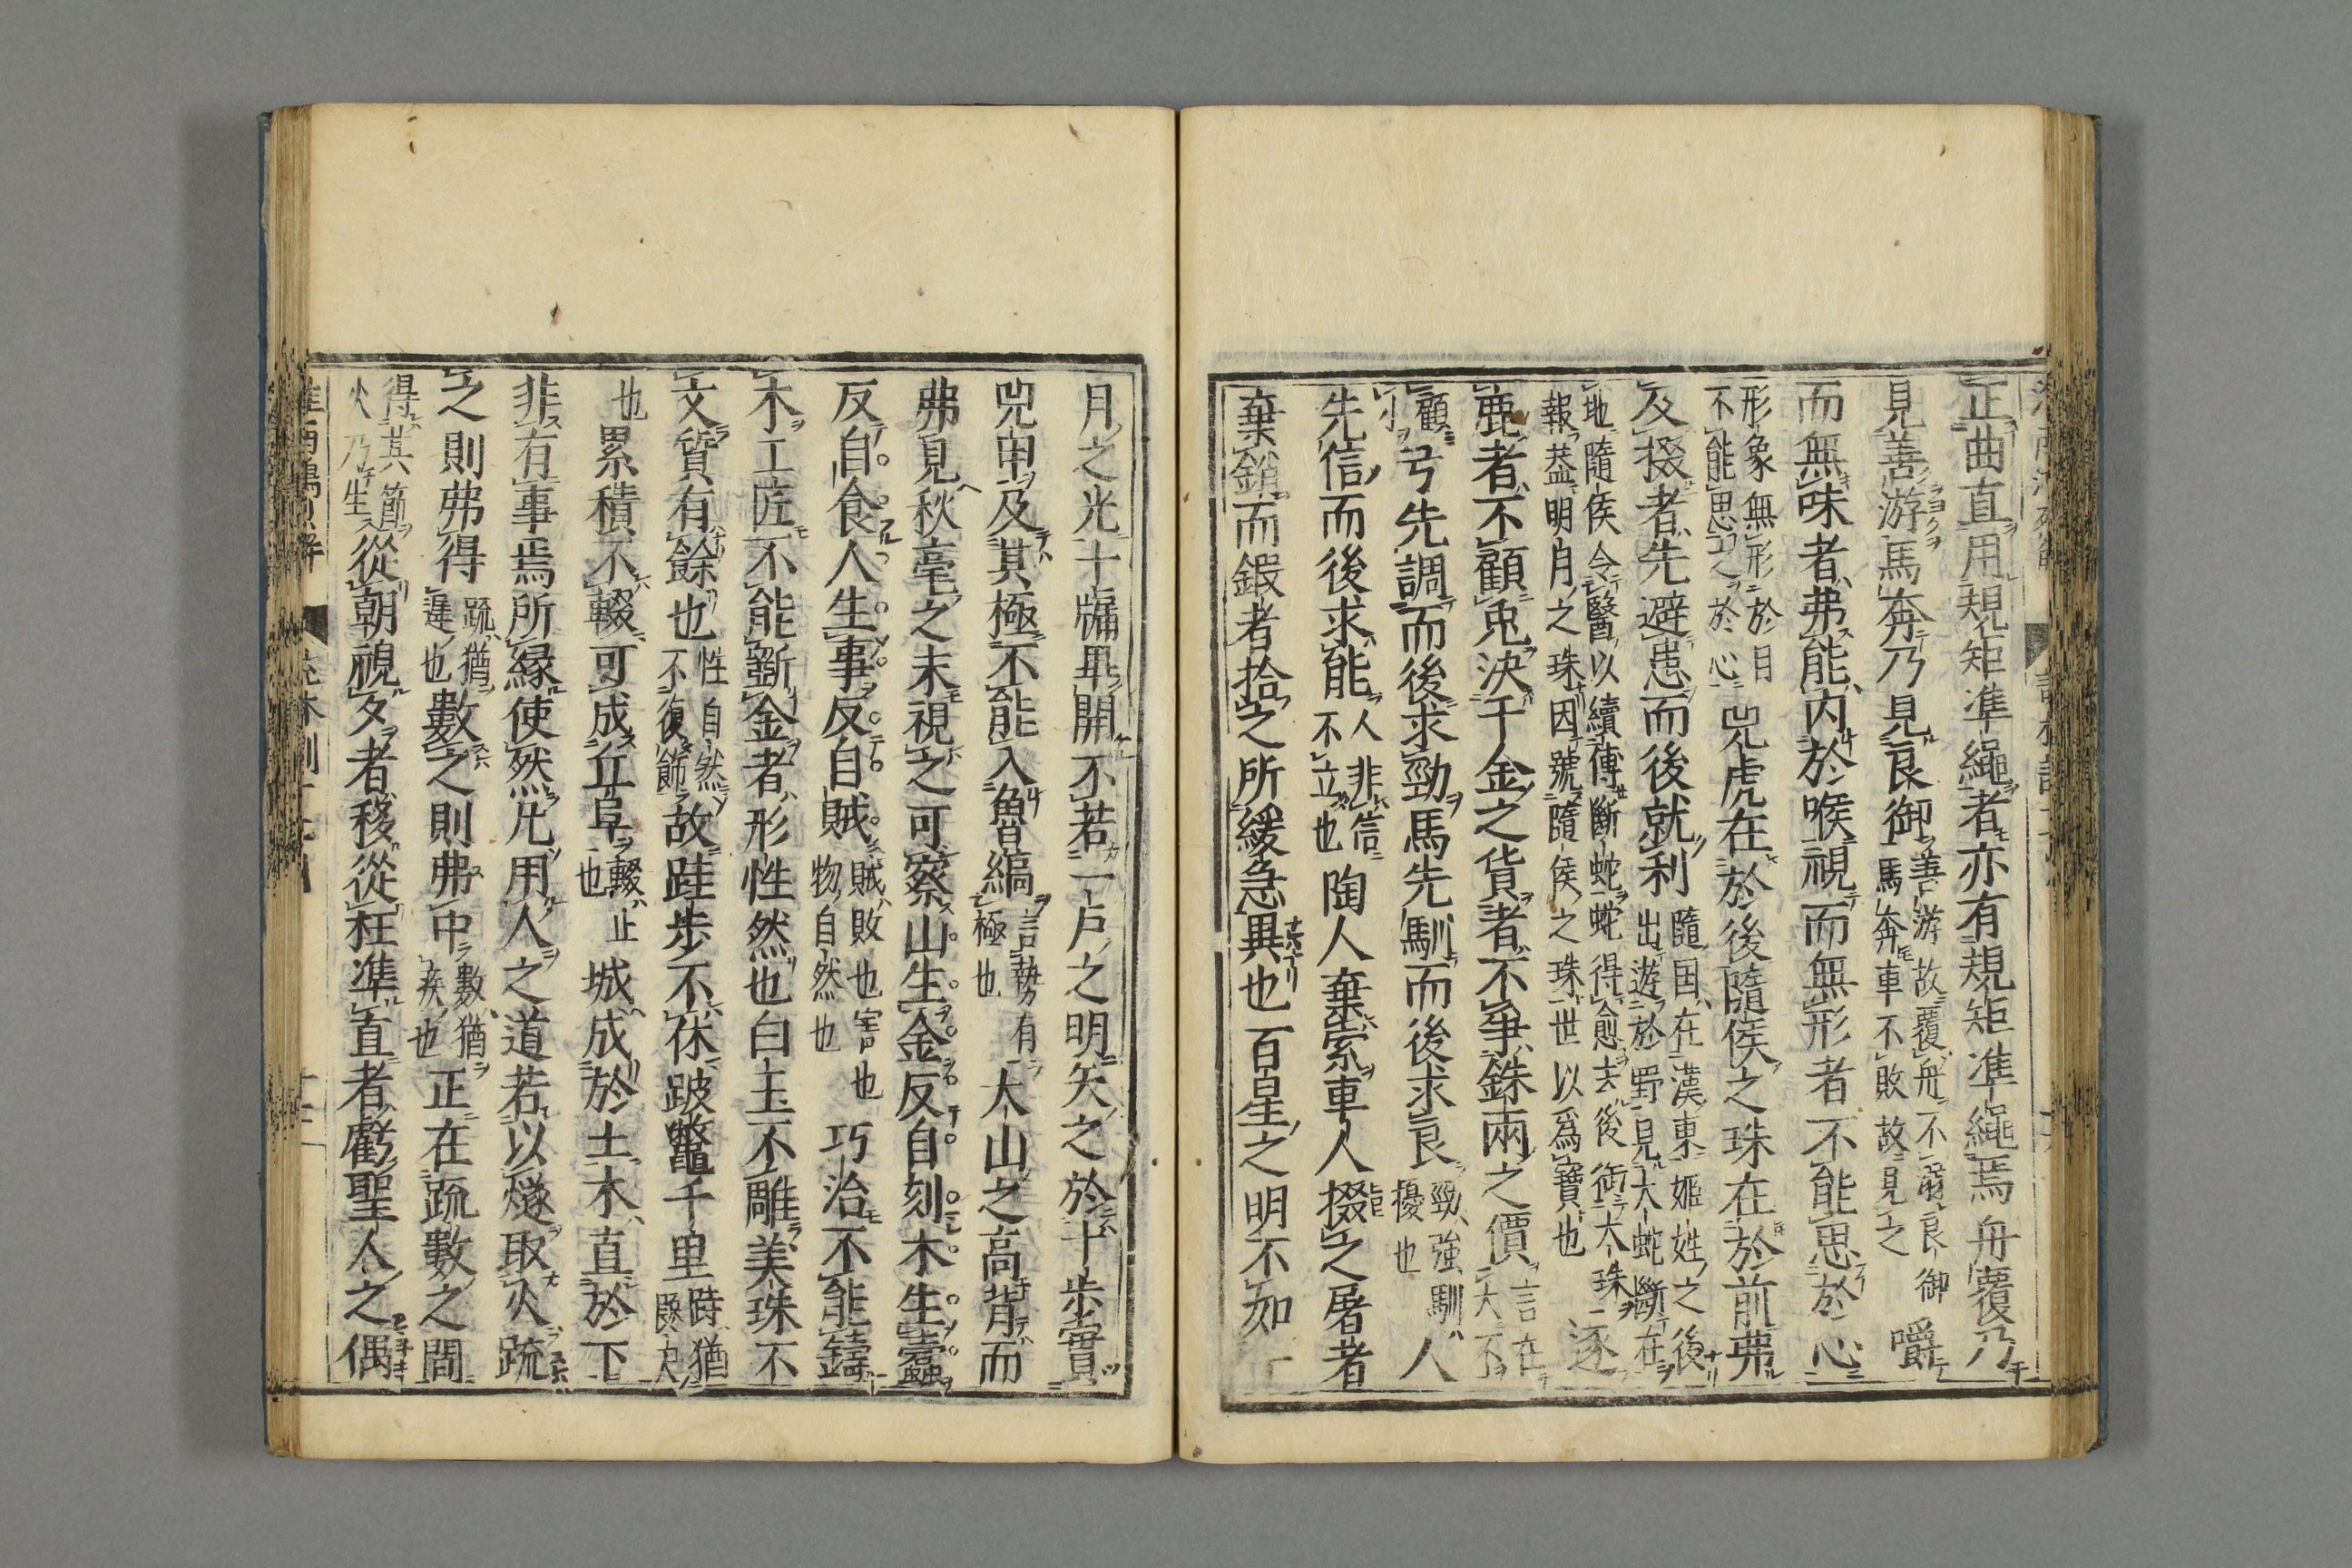 正曲直用規矩準繩者亦有規矩準繩焉舟覆乃
見善游馬奔乃見良御善游故覆舟不溺良御馬奔車不敗故見之嚼
而無味者弗能内於喉視而無形者不能思於心
形象無形於目不能思之於心兕虎在於後隨侯之珠在於前弗
及掇者先避患而後就利隨國在漢東姬姓之後出遊於野見大蛇斷在
地隨侯令醫以續傅斷蛇蛇得愈去後銜大珠報葢明月之珠因號隨侯之珠世以爲寶也逐
鹿者不顧兎決千金之貨者不爭銖兩之價言在大不
顧小弓先調而後求勁馬先馴而後求良勁強馴擾也人
先信而後求能人非信不立也陶人棄索車人掇之屠者
棄銷而鍛者拾之所緩急異也百星之明不如一
月之光十牖畢開不若一户之明矢之於十歩貫
兕甲及其極不能入魯縞言勢有極也大山之高背而
弗見秋毫之末視之可察山生金反自刻木生蠹
反自食人生事反自賊賊敗也害也物自然也巧治不能鑄
木工匠不能斲金者形性然也白玉不雕美珠不
文質有餘也性自然不復飾故跬步不休跛鼈千里
也累積不輟可成丘阜輟止也城成於土木直於下
非有事焉所縁使然凡用人之道若以燧取火疏
之則弗得疏猶遲也數之則弗中數猶疾也正在疏數之間
得其節火乃生從朝視夕者移從枉準直者虧聖人之偶